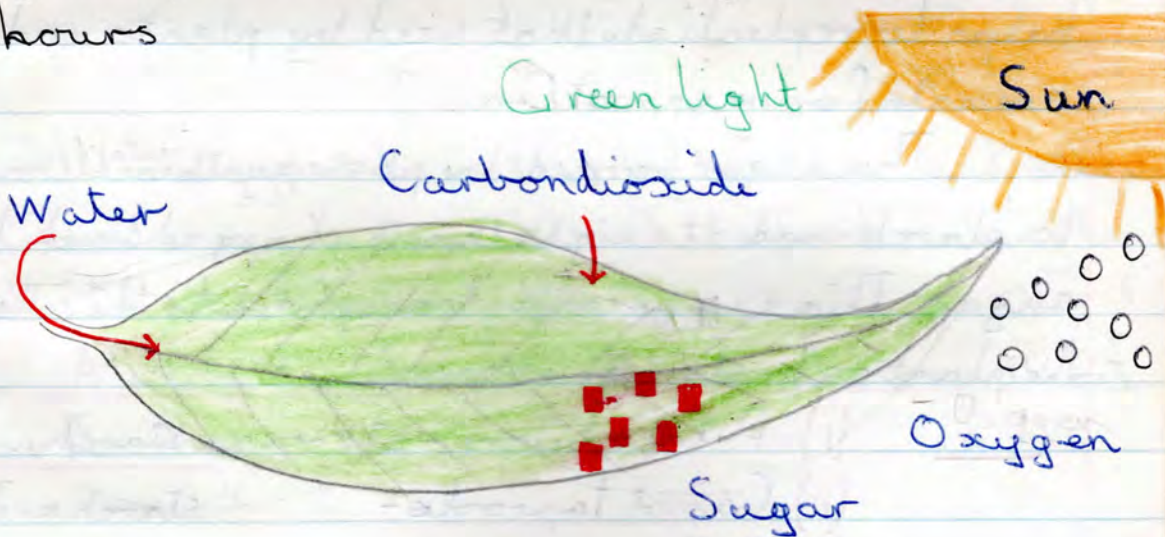 hours
Green light
Sun
Carbondioxide
Water
Oxygen
Sugar